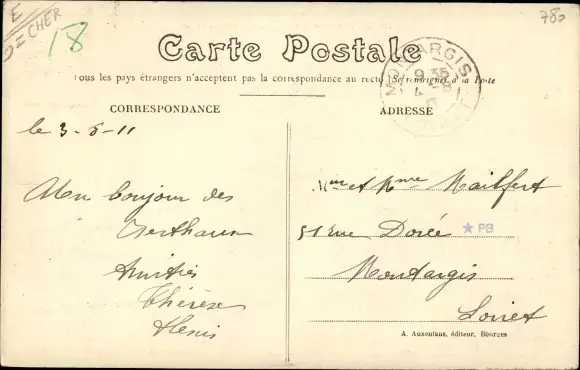 E
D=CHER
18
785
Carte Postale
Tous les pays étrangers n'acceptent pas la correspondance au recto (Se renseigner à la Poste
MONTARGIS
9 35
CORRESPONDANCE
ADRESSE
le 3-8-11
Un bonjour des
Amitiés
Thérèse
et Mme Mailfert
51 rue Dorée
★ PB
Montargis
Loiret
A. Auxenfans, éditeur, Bourges